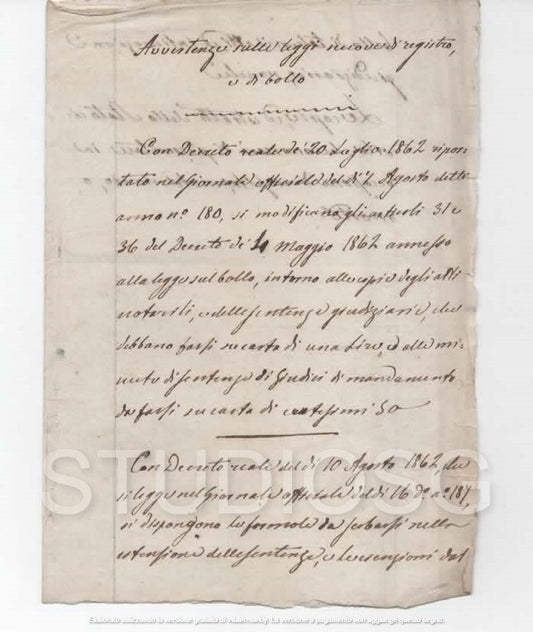 Avvertenze sulle leggi nuove di registro,
e di bollo
Con Decreto reale de' 20 Luglio 1862 ripor-
tato nel Giornale officiale del dì 2 Agosto detto
anno n.º 180, si modificano gli articoli 31 e
36 del Decreto de' 4 Maggio 1862 annesso
alla legge sul bollo, intorno alle copie degli atti
notarili, e delle sentenze giudiziarie, che
debbano farsi su carta di una Lira, e alle mi-
nute di sentenze di Giudici di mandamento
da farsi su carta di centesimi 50
Con Decreto reale del dì 10 Agosto 1862 che
si legge nel Giornale officiale del dì 16 dº nº 187,
si dispongono le formole da serbarsi nella
estensione delle sentenze, e le esenzioni dal
STUDIOSG
Elaborato utilizzando la versione gratuita di Watermarkly. La versione a pagamento non aggiunge questo segno.